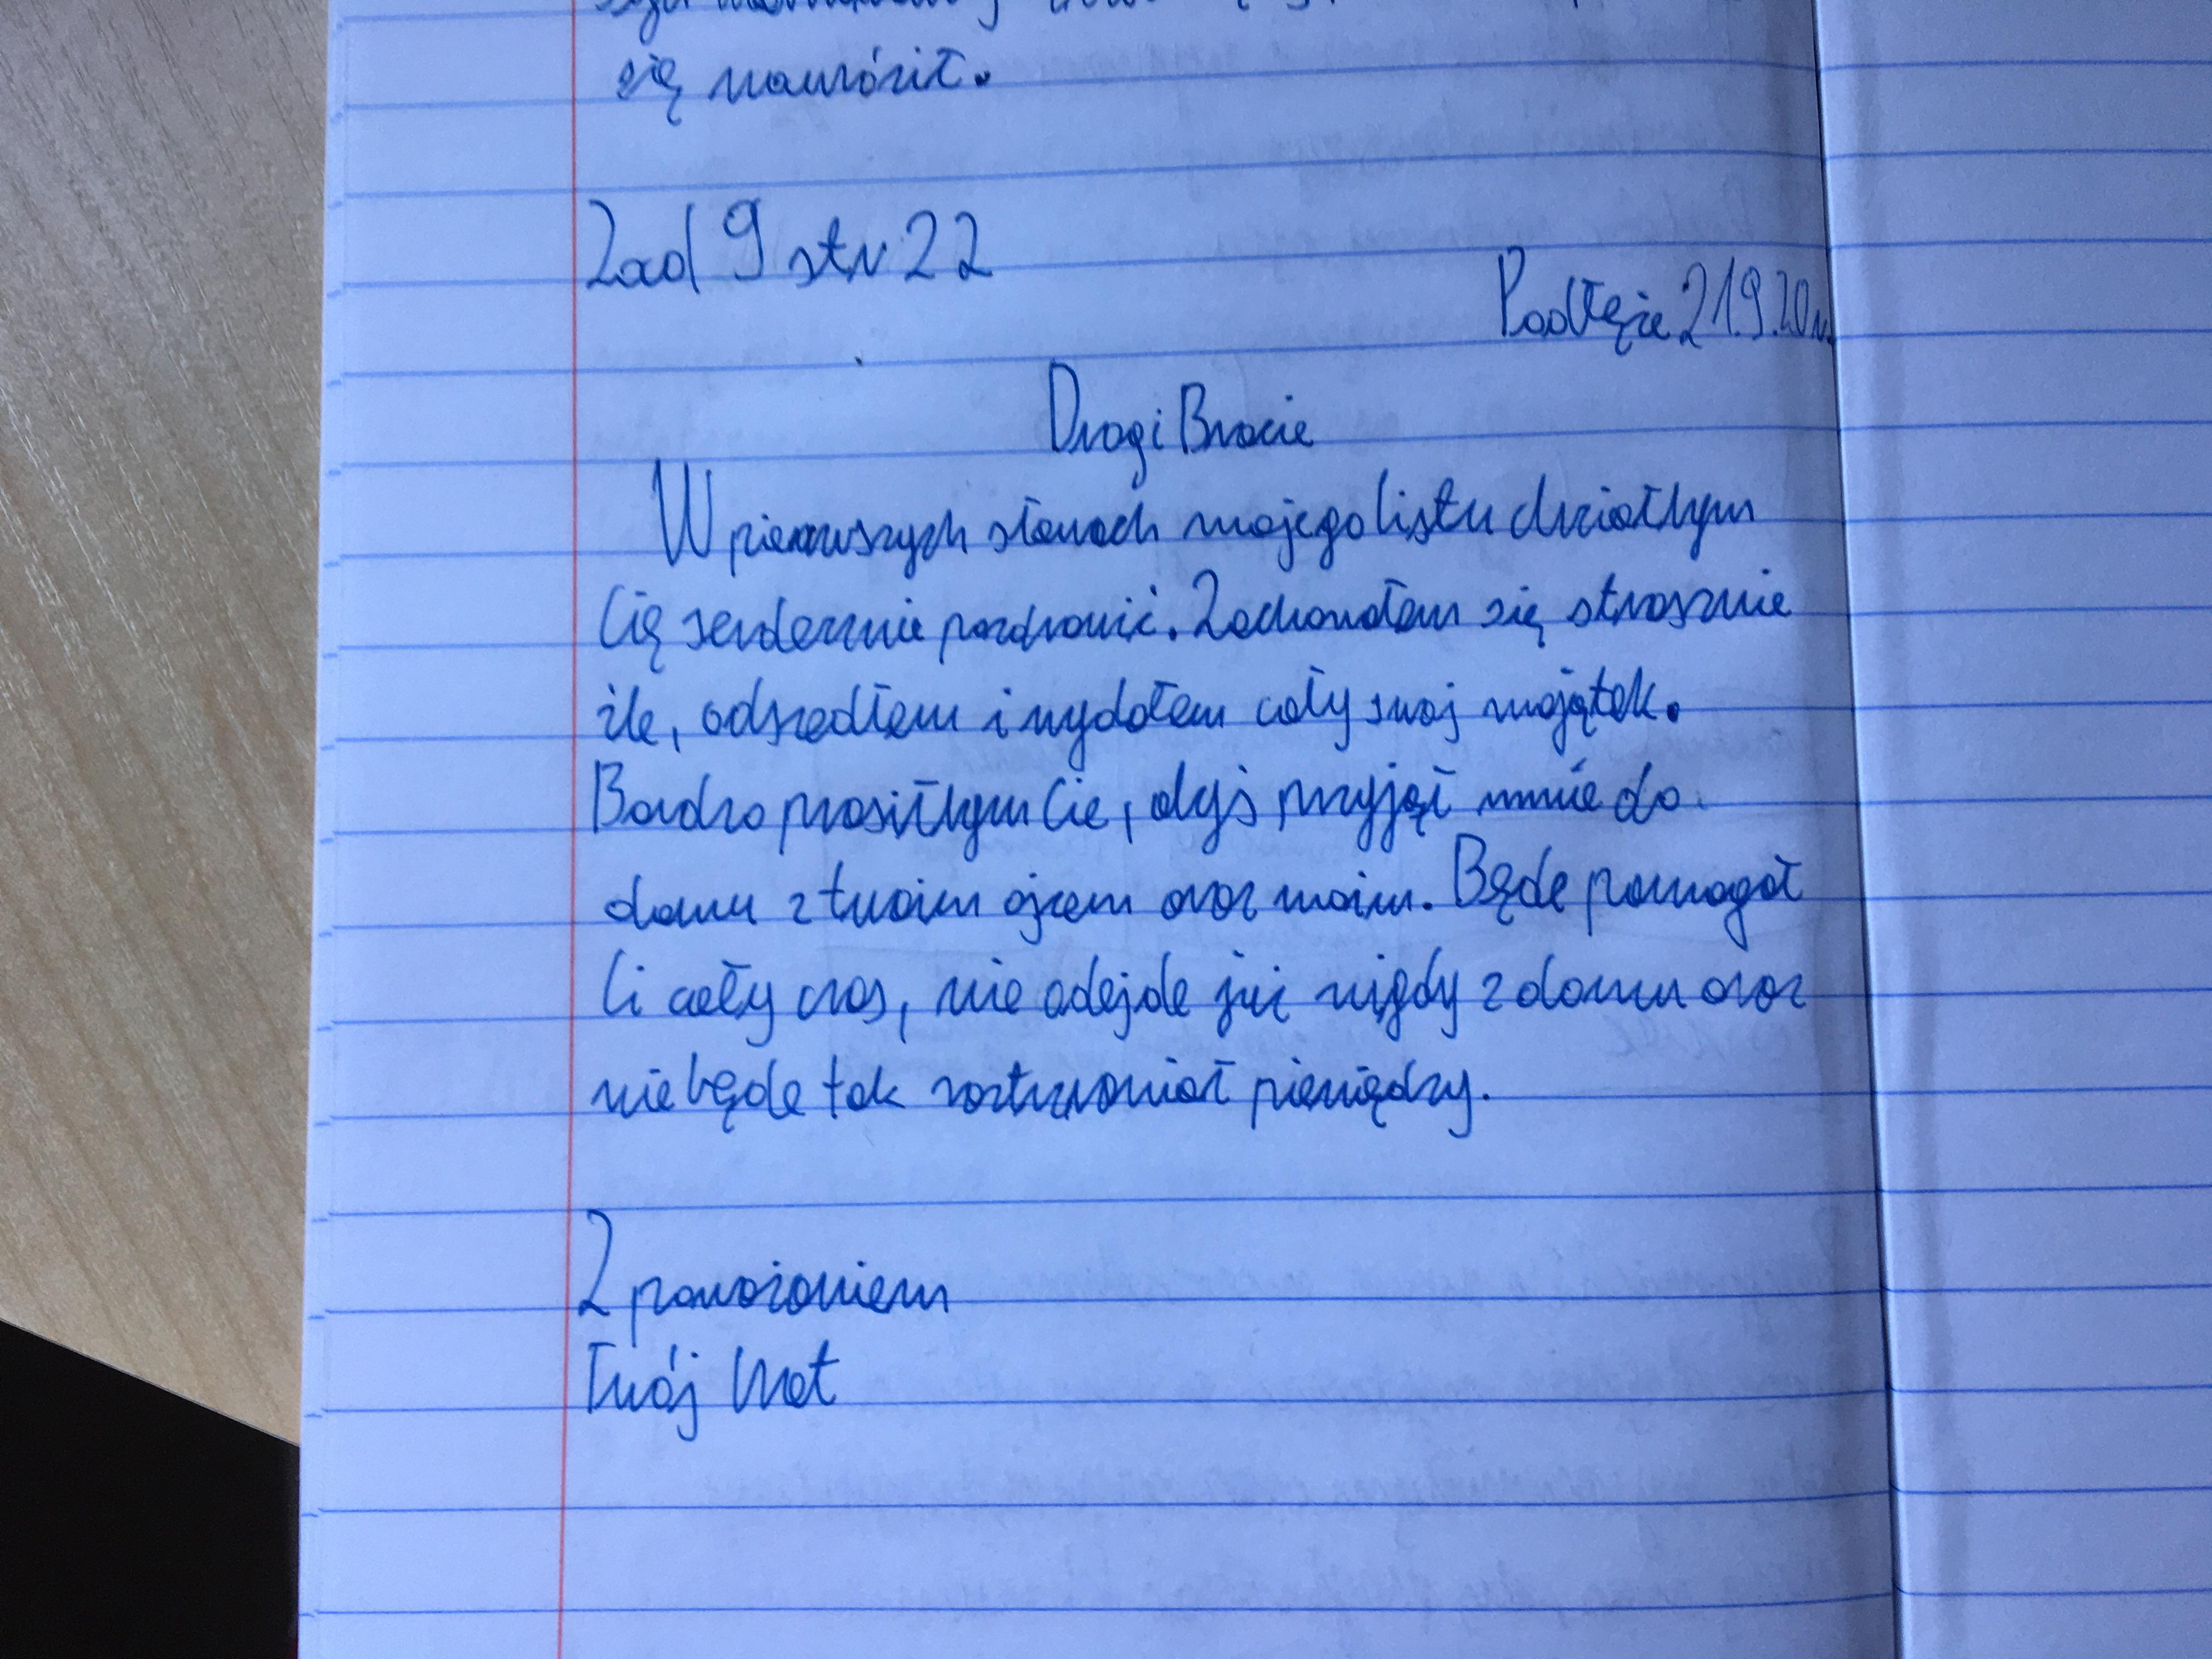 się nawrócił.
Zad 9 str 22
Podłęże 21.9.20r.
Drogi Bracie
W pierwszych słowach mojego listu chciałbym
Cię serdecznie pozdrowić. Zachowałem się strasznie
źle, odszedłem i wydałem cały swój majątek.
Bardzo prosiłbym Cie, abyś przyjął mnie do
domu z twoim ojcem oraz moim. Będe pomagał
Ci cały czas, nie odejde już nigdy z domu oraz
nie będe tak roztrwaniał pieniędzy.
Z poważaniem
Twój brat